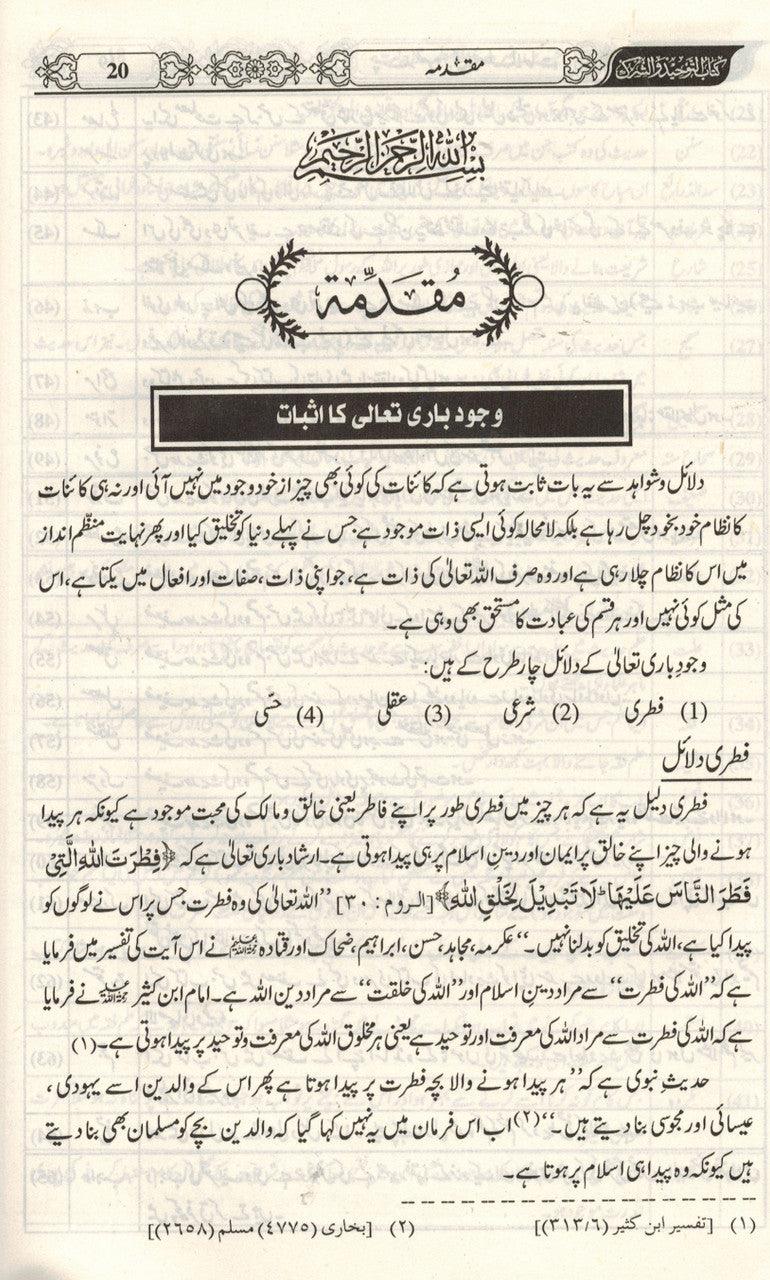 کتاب التوحید والشرک
مقدمہ
20
بسم اللہ الرحمن الرحیم
مُقدمّۃ
وجود باری تعالی کا اثبات
دلائل و شواہد سے یہ بات ثابت ہوتی ہے کہ کائنات کی کوئی بھی چیز از خود وجود میں نہیں آئی اور نہ ہی کائنات
کا نظام خود بخود چل رہا ہے بلکہ لامحالہ کوئی ایسی ذات موجود ہے جس نے پہلے دنیا کو تخلیق کیا اور پھر نہایت منظّم انداز
میں اس کا نظام چلا رہی ہے اور وہ صرف اللہ تعالیٰ کی ذات ہے، جو اپنی ذات، صفات اور افعال میں یکتا ہے، اس
کی مثل کوئی نہیں اور ہر قسم کی عبادت کا مستحق بھی وہی ہے۔
وجودِ باری تعالیٰ کے دلائل چار طرح کے ہیں:
(1) فطری (2) شرعی (3) عقلی (4) حسّی
فطری دلائل
فطری دلیل یہ ہے کہ ہر چیز میں فطری طور پر اپنے فاطر یعنی خالق و مالک کی محبت موجود ہے کیونکہ ہر پیدا
ہونے والی چیز اپنے خالق پر ایمان اور دینِ اسلام پر ہی پیدا ہوتی ہے۔ ارشاد باری تعالیٰ ہے کہ ﴿فِطْرَتَ اللهِ الَّتِيْ
فَطَرَ النَّاسَ عَلَيْهَا ؕ لَا تَبْدِيْلَ لِخَلْقِ اللهِ﴾ [الروم: ٣٠] ’’اللہ تعالیٰ کی وہ فطرت جس پر اس نے لوگوں کو
پیدا کیا ہے، اللہ کی تخلیق کو بدلنا نہیں۔‘‘ عکرمہ، مجاہد، حسن، ابراہیم، ضحاک اور قتادہ رحمہم اللہ نے اس آیت کی تفسیر میں فرمایا
ہے کہ ’’اللہ کی فطرت‘‘ سے مراد دینِ اسلام اور ’’اللہ کی خلقت‘‘ سے مراد دین اللہ ہے۔ امام ابن کثیر رحمہ اللہ نے فرمایا
ہے کہ اللہ کی فطرت سے مراد اللہ کی معرفت اور توحید ہے یعنی ہر مخلوق اللہ کی معرفت و توحید پر پیدا ہوتی ہے۔ (۱)
حدیثِ نبوی ہے کہ ’’ہر پیدا ہونے والا بچہ فطرت پر پیدا ہوتا ہے پھر اس کے والدین اسے یہودی،
عیسائی اور مجوسی بنا دیتے ہیں۔‘‘ (۲) اب اس فرمان میں یہ نہیں کہا گیا کہ والدین بچے کو مسلمان بھی بنا دیتے
ہیں کیونکہ وہ پیدا ہی اسلام پر ہوتا ہے۔
(۱) [تفسیر ابن کثیر (۳۱۳/۶)] (۲) [بخاری (۴۷۷۵) مسلم (۲۶۵۸)]